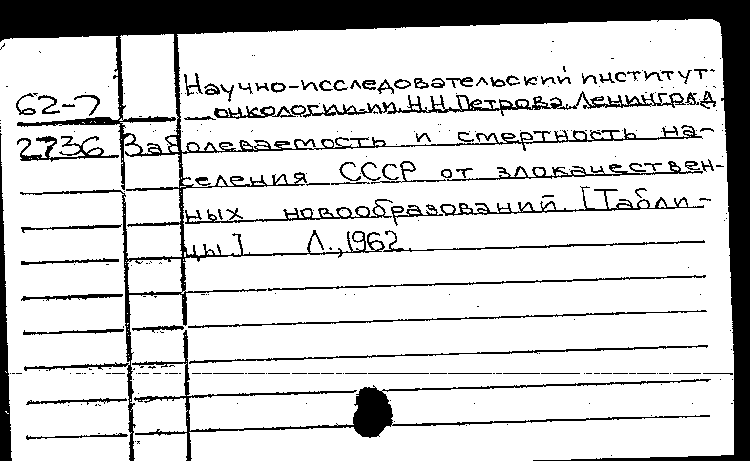 Научно-исследовательский институт
62-7 онкологии им. Н.Н. Петрова. Ленинград.
2736 Заболеваемость и смертность на-
селения СССР от злокачествен-
ных новообразований. [Табли-
цы]. Л., 1962.